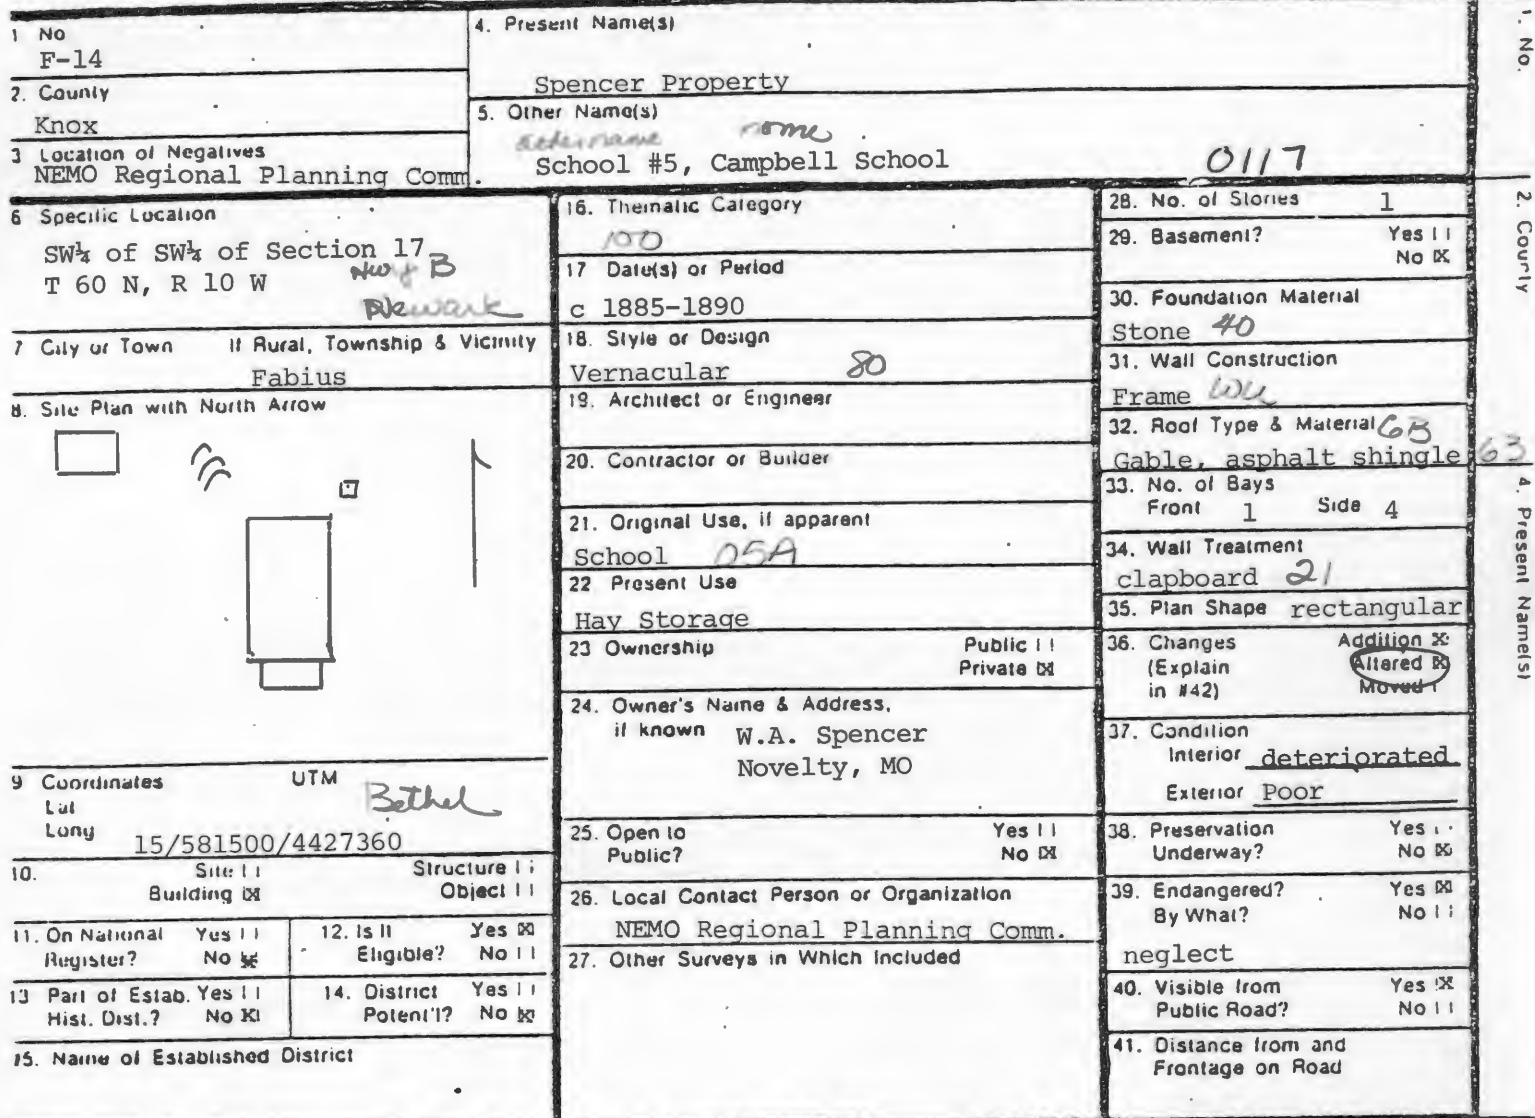 1 No
F-14
2. County
Knox
3 Location of Negatives
NEMO Regional Planning Comm.
4. Present Name(s)
Spencer Property
5. Other Name(s)
School #5, Campbell School
0117
6 Specific Location
SW¼ of SW¼ of Section 17
T 60 N, R 10 W
Hwy B
Newark
7 City or Town If Rural, Township & Vicinity
Fabius
8. Site Plan with North Arrow
9 Coordinates UTM
Lat
Long
Bethel
15/581500/4427360
10. Site Structure
Building ☒ Object
11. On National Register? Yes No ☒
12. Is It Eligible? Yes ☒ No
13 Part of Estab. Hist. Dist.? Yes No ☒
14. District Potent'l? Yes No ☒
15. Name of Established District
16. Thematic Category
100
17 Date(s) or Period
c 1885-1890
18. Style or Design
Vernacular 80
19. Architect or Engineer
20. Contractor or Builder
21. Original Use, if apparent
School 05A
22 Present Use
Hay Storage
23 Ownership Public
Private ☒
24. Owner's Name & Address,
if known W.A. Spencer
Novelty, MO
25. Open to Yes
Public? No ☒
26. Local Contact Person or Organization
NEMO Regional Planning Comm.
27. Other Surveys in Which Included
28. No. of Stories 1
29. Basement? Yes
No ☒
30. Foundation Material
Stone 40
31. Wall Construction
Frame
32. Roof Type & Material GB
Gable, asphalt shingle 63
33. No. of Bays
Front 1 Side 4
34. Wall Treatment
clapboard 21
35. Plan Shape rectangular
36. Changes Addition ☒
(Explain Altered ☒
in #42) Moved
37. Condition
Interior deteriorated
Exterior Poor
38. Preservation Yes
Underway? No ☒
39. Endangered? Yes ☒
By What? No
neglect
40. Visible from Yes ☒
Public Road? No
41. Distance from and
Frontage on Road
1. No.
2. County
4. Present Name(s)